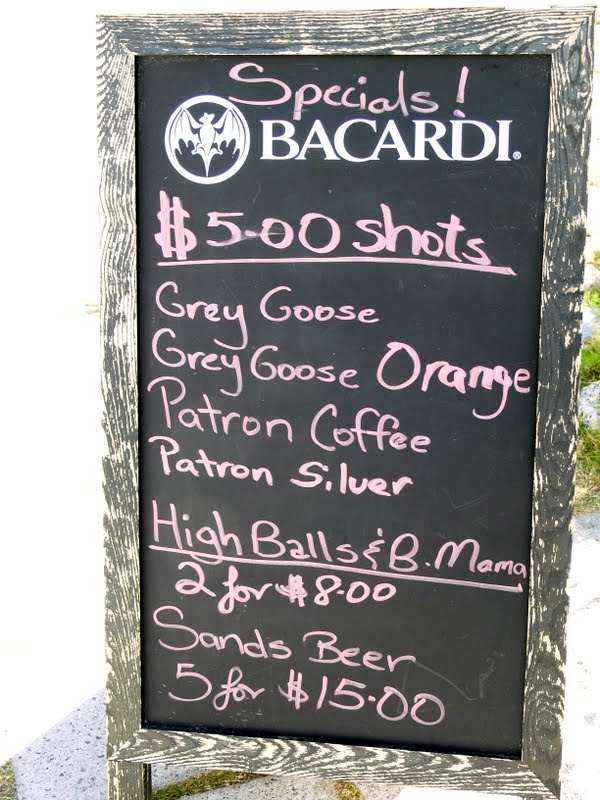 Specials!
BACARDI.
$5.00 shots
Grey Goose
Grey Goose Orange
Patron Coffee
Patron Silver
High Balls & B. Mama
2 for $8.00
Sands Beer
5 for $15.00